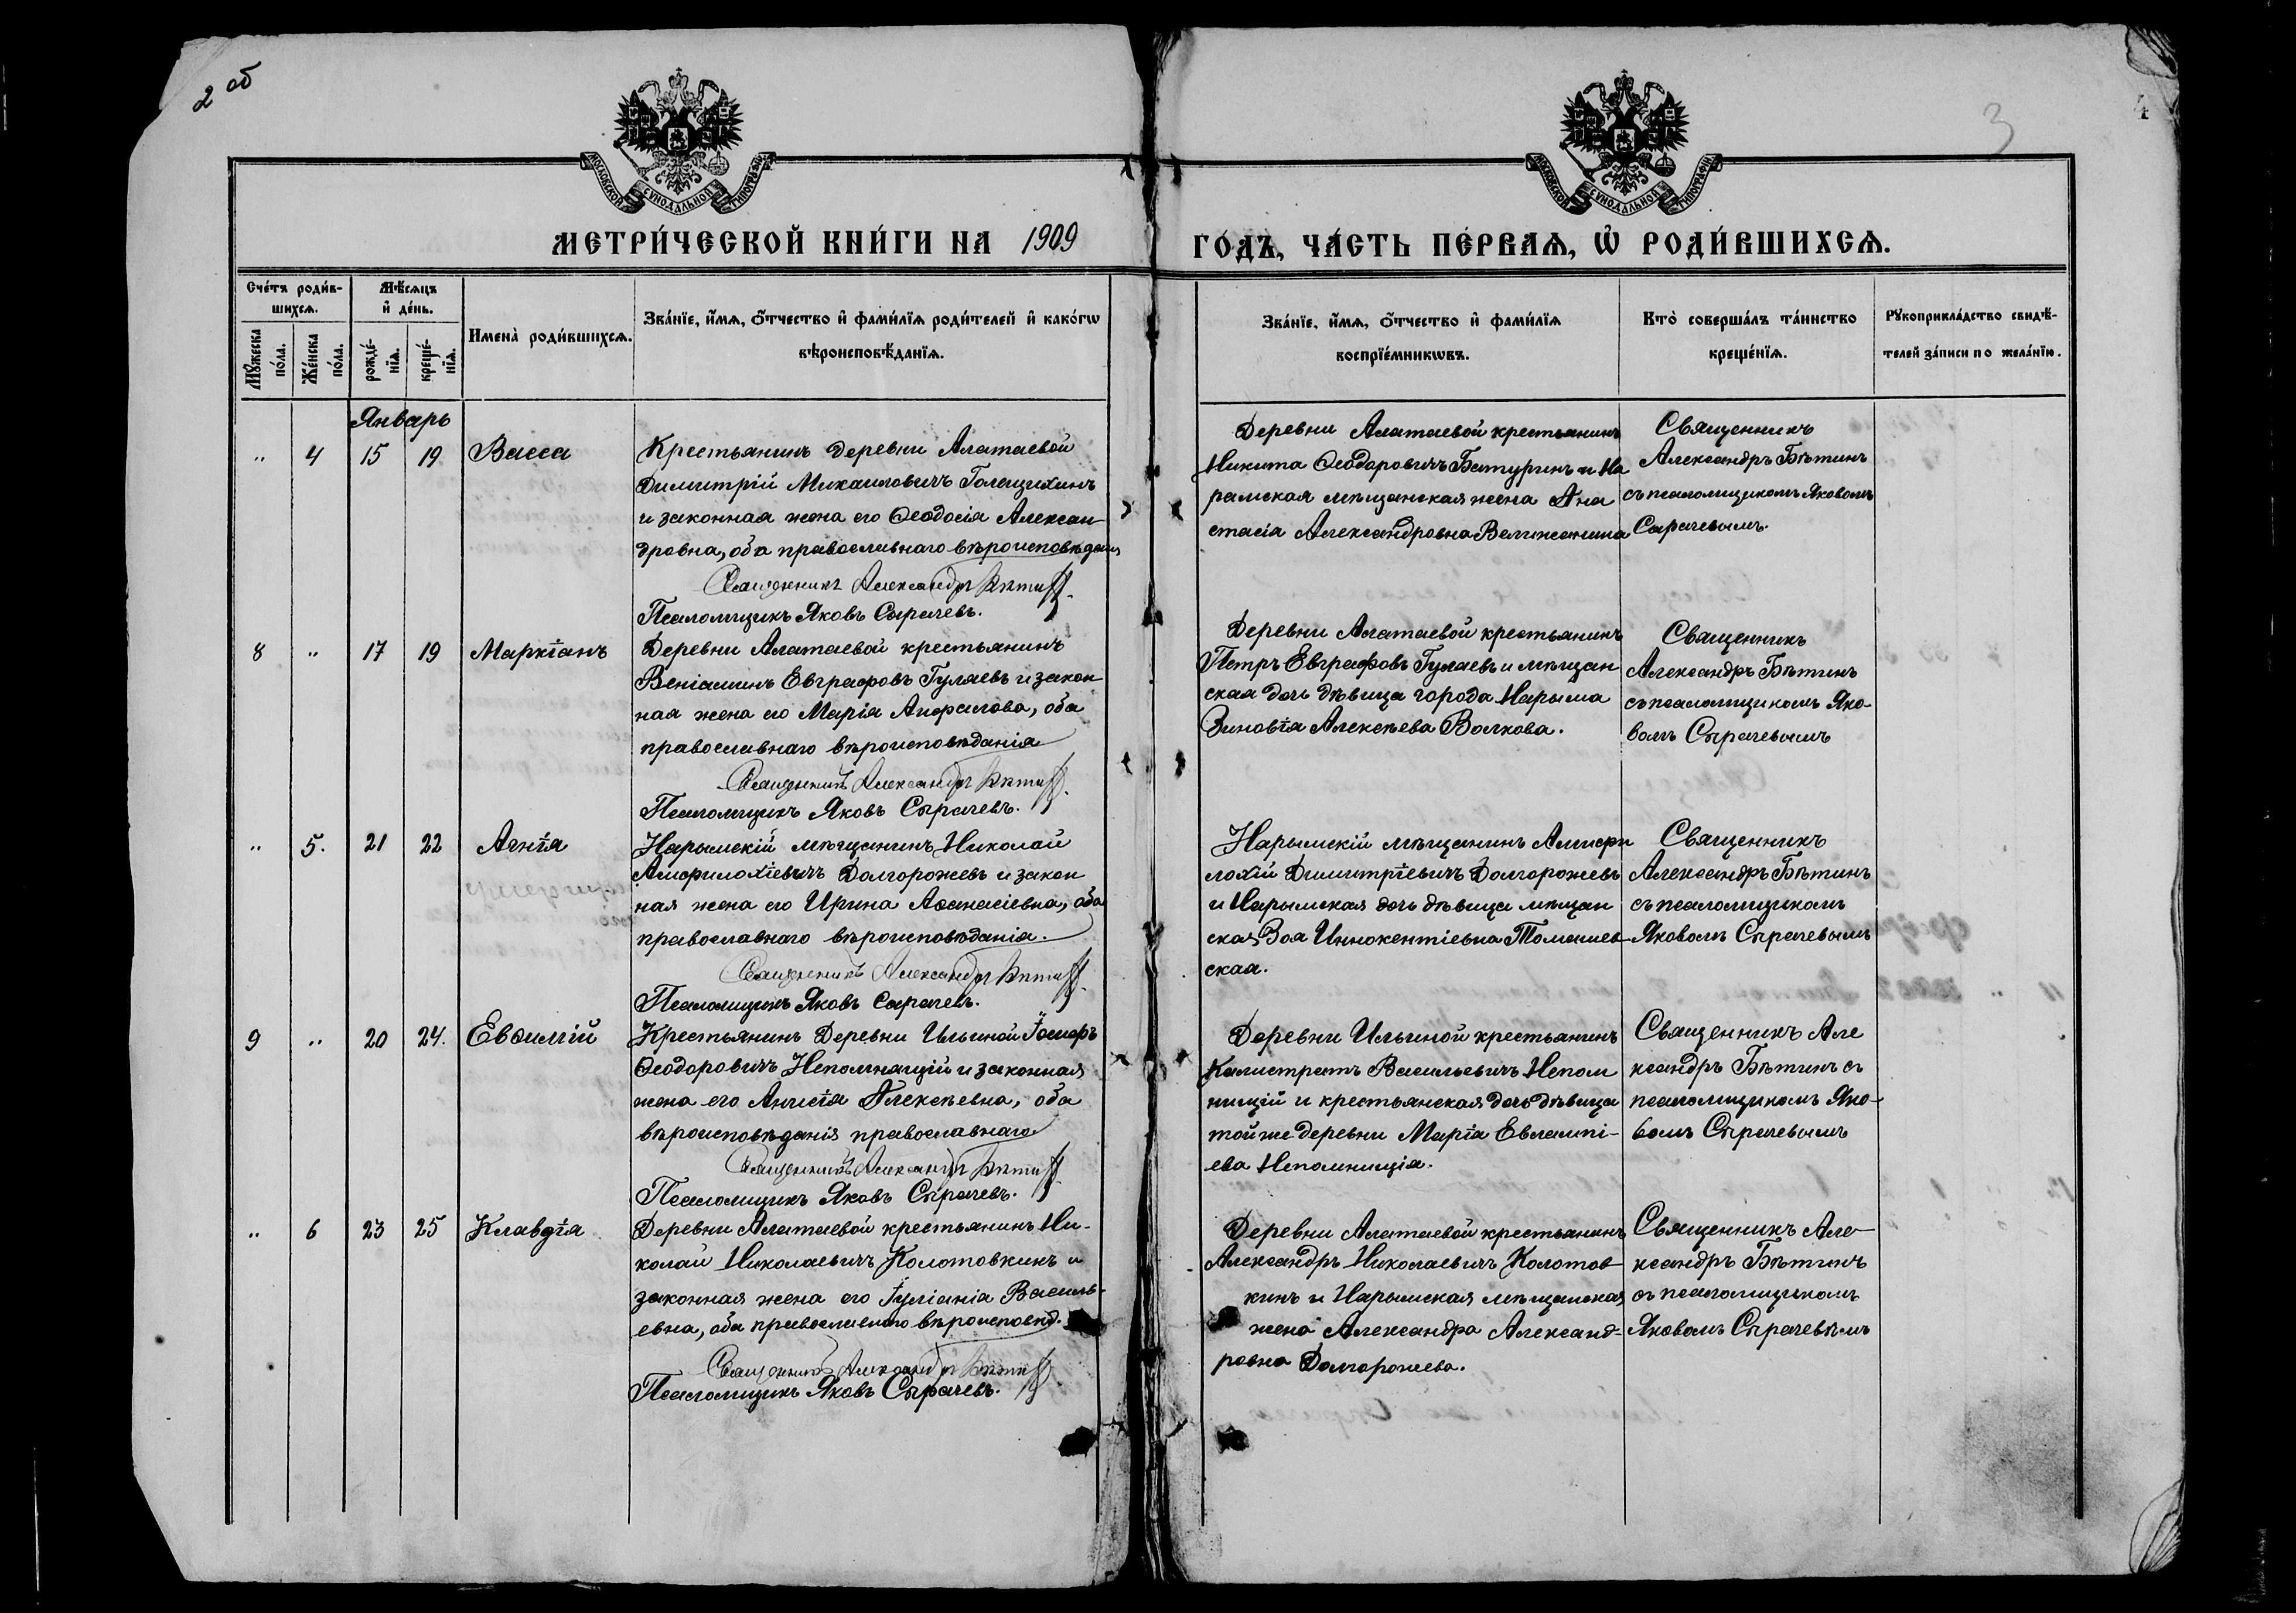 2 об
3
4
МОСКОВСКОЙ СѴНОДАЛЬНОЙ ТИПОГРАФІИ
МОСКОВСКОЙ СѴНОДАЛЬНОЙ ТИПОГРАФІИ
МЕТРИ́ЧЕСКОЙ КНИ́ГИ НА 1909
ГО́ДЪ, ЧА́СТЬ ПЕ́РВАЯ, Ѡ҆ РОДИ́ВШИХСЯ.
Сче́тъ роди́в-
шихся.
Мѣ́сяцъ
и҆ де́нь.
Мꙋжеска
по́ла.
Же́нска
по́ла.
рожде́-
нїя.
креще́-
нїя.
Имена̀ роди́вшихся.
Зва́нїе, и҆́мя, ѻ҆́тчество и҆ фами́лїя роди́телей и҆ како́гѡ
вѣроисповѣ́данїя.
Зва́нїе, и҆́мя, ѻ҆́тчество и҆ фами́лїя
воспрїе́мникѡвъ.
Кто̀ соверша́лъ та́инство
креще́нїя.
Рꙋкоприкла́дство свидѣ́-
телей за́писи по жела́нїю.
Январь
" 4 15 19 Васса
Крестьянинъ деревни Алатаевой
Димитрій Михаиловичъ Голещихинъ
и законная жена его Ѳеодосія Алексан-
дровна, оба православнаго вѣроисповѣданія
Священникъ Александръ Бѣтинъ
Псаломщикъ Яковъ Сырачевъ.
Деревни Алатаевой крестьянинъ
Никита Ѳеодоровичъ Батуринъ и На
рымская мѣщанская жена Ана
стасія Александровна Вялижанина
Священникъ
Александръ Бѣтинъ
съ псаломщикомъ Яковомъ
Сырачевымъ.
8 " 17 19 Маркіанъ
Деревни Алатаевой крестьянинъ
Веніаминъ Евграфовъ Гуляевъ и закон
ная жена его Марія Анфилова, оба
православнаго вѣроисповѣданія
Священникъ Александръ Бѣтинъ
Псаломщикъ Яковъ Сырачевъ.
Деревни Алатаевой крестьянинъ
Петръ Евграфовъ Гуляевъ и мѣщан
ская дочь дѣвица города Нарыма
Зиновія Алексѣева Волкова.
Священникъ
Александръ Бѣтинъ
съ псаломщикомъ Яко-
вомъ Сырачевымъ
" 5. 21 22 Агнія
Нарымскій мѣщанинъ Николай
Амфилохіевичъ Долгорожевъ и закон
ная жена его Ирина Аѳанасіевна, оба
православнаго вѣроисповѣданія.
Священникъ Александръ Бѣтинъ
Псаломщикъ Яковъ Сырачевъ.
Нарымскій мѣщанинъ Амфи
лохій Димитріевичъ Долгорожевъ
и Нарымская дочь дѣвица мѣщан
ская Зоя Иннокентіевна Томашев-
ская.
Священникъ
Александръ Бѣтинъ
съ псаломщикомъ
Яковомъ Сырачевымъ
9 " 20 24. Евѳимій
Крестьянинъ Деревни Ильиной Іосифъ
Ѳеодоровичъ Непомнящій и законная
жена его Анисія Алексѣевна, оба
вѣроисповѣданія православнаго
Священникъ Александръ Бѣтинъ
Псаломщикъ Яковъ Сырачевъ.
Деревни Ильиной крестьянинъ
Калистратъ Васильевичъ Непом
нищій и крестьянская дочь дѣвица
той же деревни Марія Евлампі-
ева Непомнищія.
Священникъ Але
ксандръ Бѣтинъ съ
псаломщикомъ Яко-
вомъ Сырачевымъ
" 6 23 25 Клавдія
Деревни Алатаевой крестьянинъ Ни-
колай Николаевичъ Колотовкинъ и
законная жена его Іуліанія Василь-
евна, оба православнаго вѣроисповѣд.
Священникъ Александръ Бѣтинъ
Псаломщикъ Яковъ Сырачевъ.
Деревни Алатаевой крестьянинъ
Александръ Николаевичъ Колотов-
кинъ и Нарымская мѣщанская
жена Александра Александ-
ровна Долгорожева.
Священникъ Але-
ксандръ Бѣтинъ
съ псаломщикомъ
Яковомъ Сырачевымъ